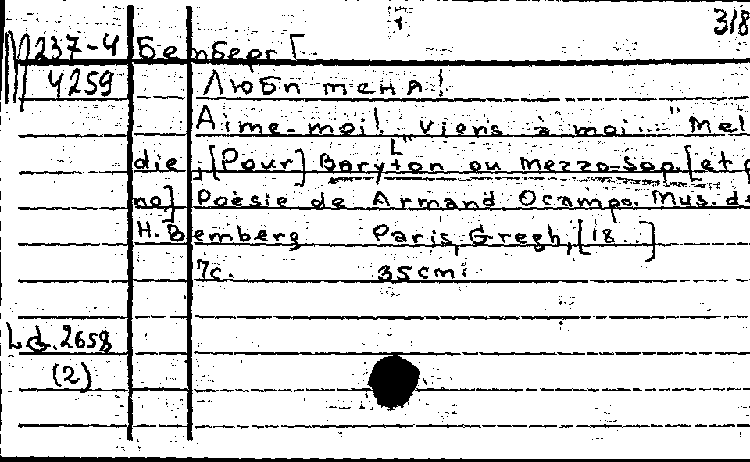 318
М237-4 Бемберг Г.
4259 Люби меня!
Aime-moi! "Viens à moi..." Mel
die, [Pour] Baryton ou Mezzo-Sop. [et p
no] Poésie de Armand Ocampo. Mus. de
H. Bemberg Paris, Gregh, [18..]
7с. 35cm.
Ld. 2658
(2)